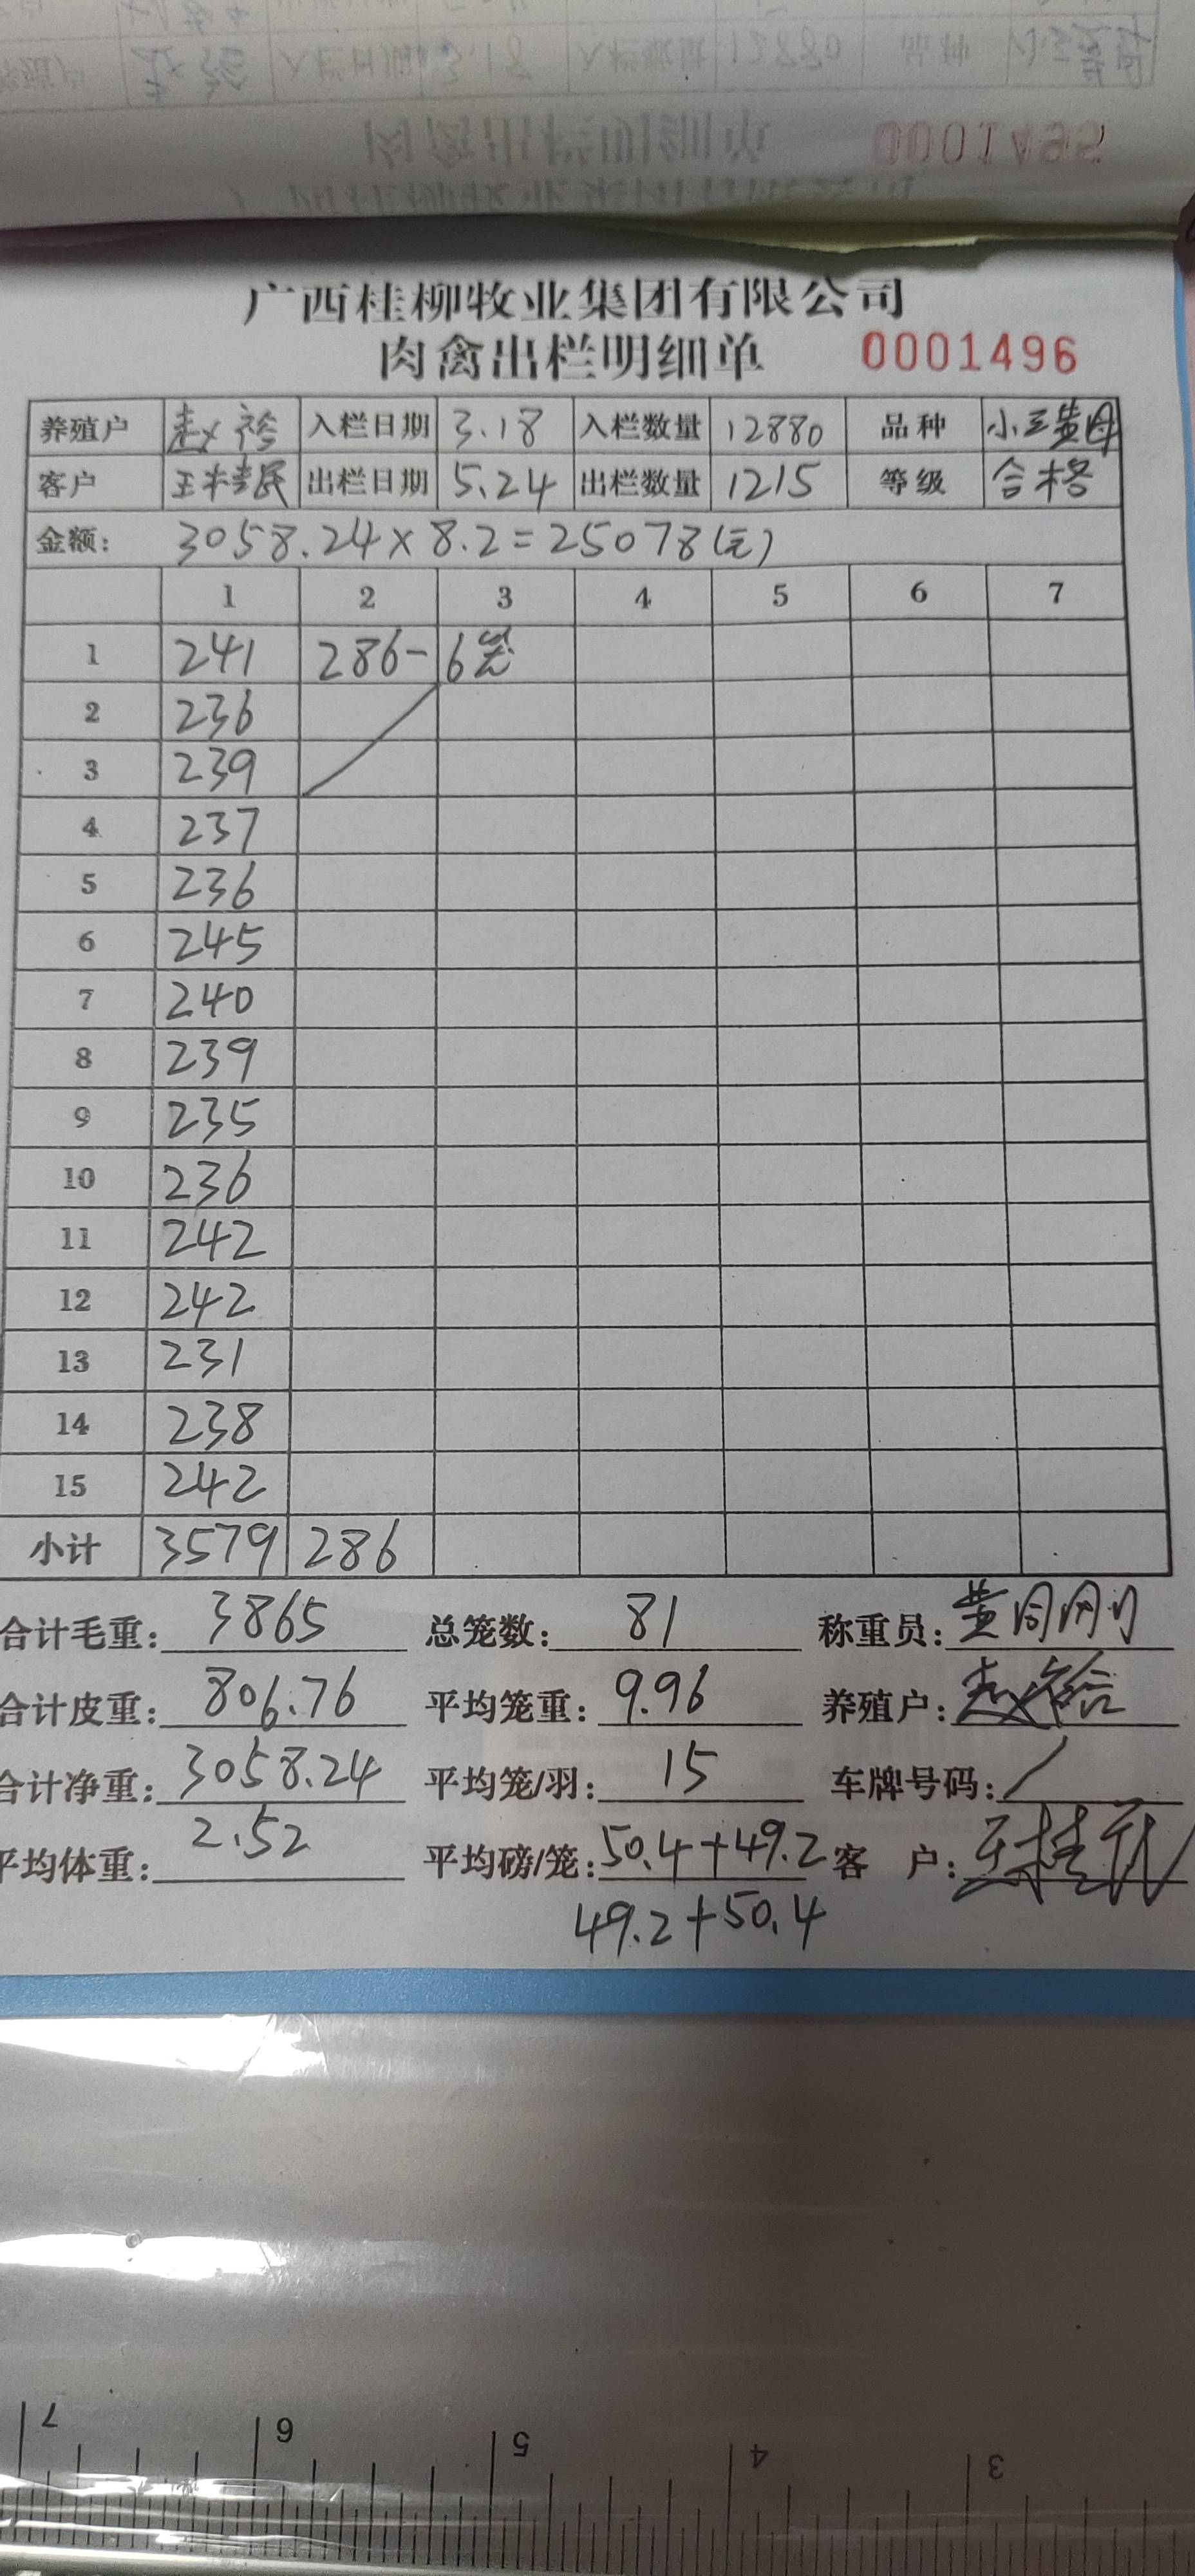 0001495
广西桂柳牧业集团有限公司
肉禽出栏明细单 0001496
养殖户 赵裕 入栏日期 3.18 入栏数量 12880 品种 小三黄母
客户 出栏日期 5.24 出栏数量 1215 等级 合格
金额: 3058.24×8.2=25078(元)
1 2 3 4 5 6 7
1 241 286- 6笼
2 236
3 239
4 237
5 236
6 245
7 240
8 239
9 235
10 236
11 242
12 242
13 231
14 238
15 242
小计 3579 286
合计毛重: 3865 总笼数: 81 称重员: 黄同刚
合计皮重: 806.76 平均笼重: 9.96 养殖户: 赵裕
合计净重: 3058.24 平均笼/羽: 15 车牌号码: /
平均体重: 2.52 平均磅/笼: 50.4+49.2 客 户:
49.2+50.4
7 6 5 4 3